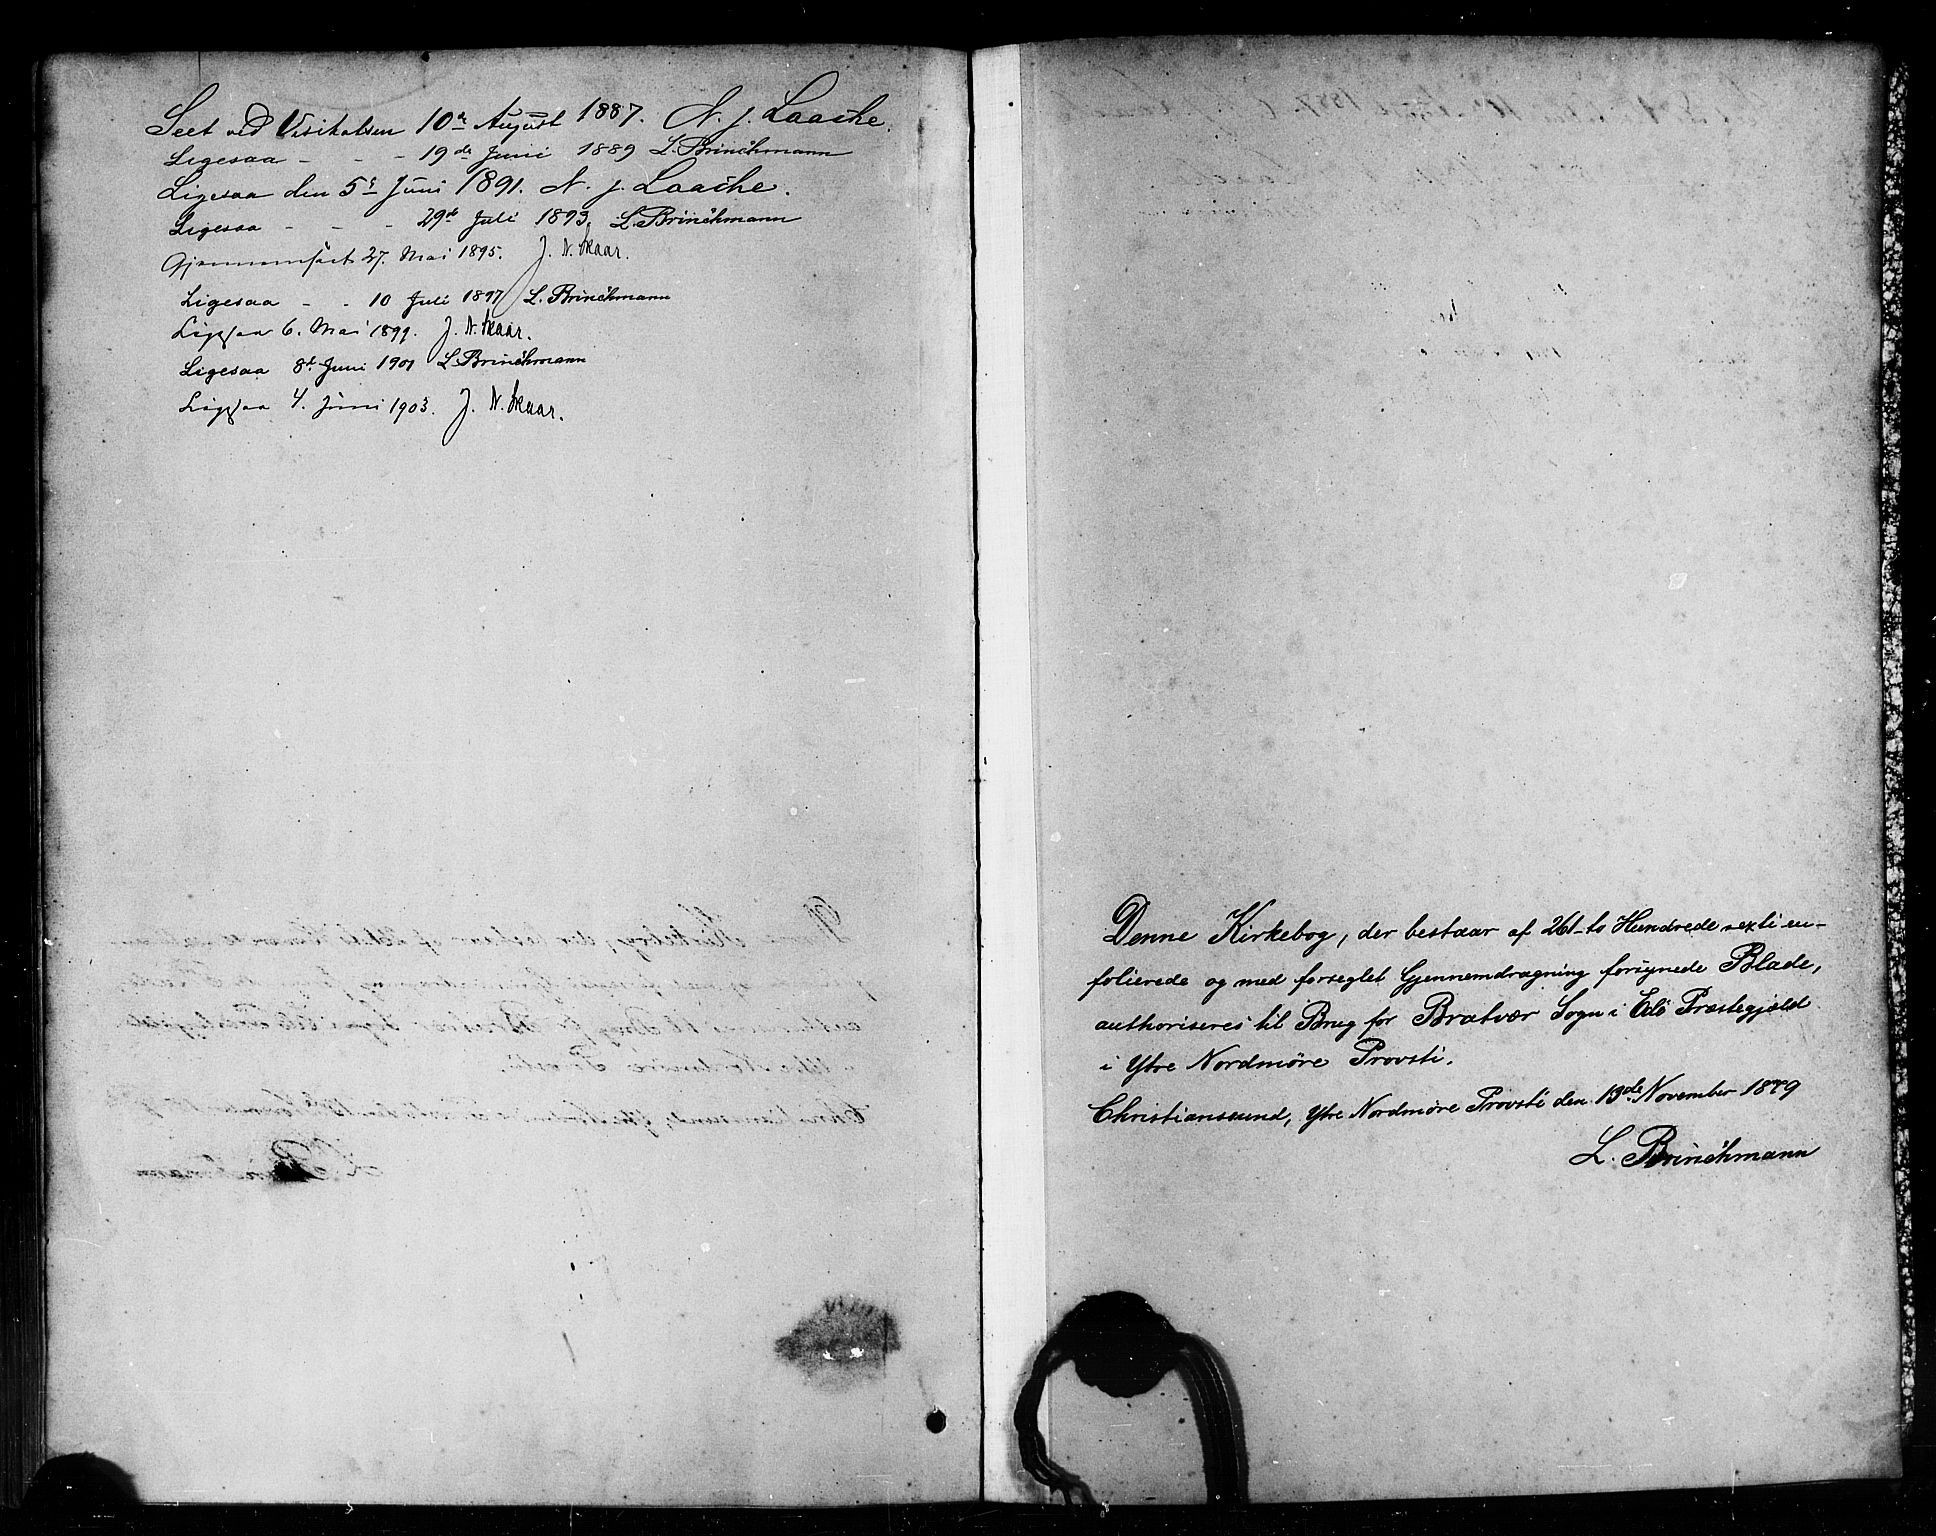 Seet ved Visitatsen 10de August 1887. N. J. Laache.
Ligesaa - - - 19de Juni 1889 L. Brinchmann
Ligesaa den 5te Juni 1891. N. J. Laache.
Ligesaa - - - 29de Juli 1893. L. Brinchmann
Gjennemseet 27. Mai 1895. J. N. Skaar.
Ligesaa - - 10 Juli 1897 L. Brinchmann
Ligesaa 6. Mai 1899. J. N. Skaar.
Ligesaa 8de Juni 1901 L. Brinchmann
Ligesaa 4. Juni 1903. J. N. Skaar.
Denne Kirkebog, der bestaar af 261 - to Hundrede sexti en -
folierede og med forseglet Gjennemdragning forsynede Blade,
authoriseres til Brug for Bratvær Sogn i Edø Præstegjeld
i Ytre Nordmøre Provsti.
Christianssund, Ytre Nordmøre Provsti den 13de November 1879
L. Brinchmann